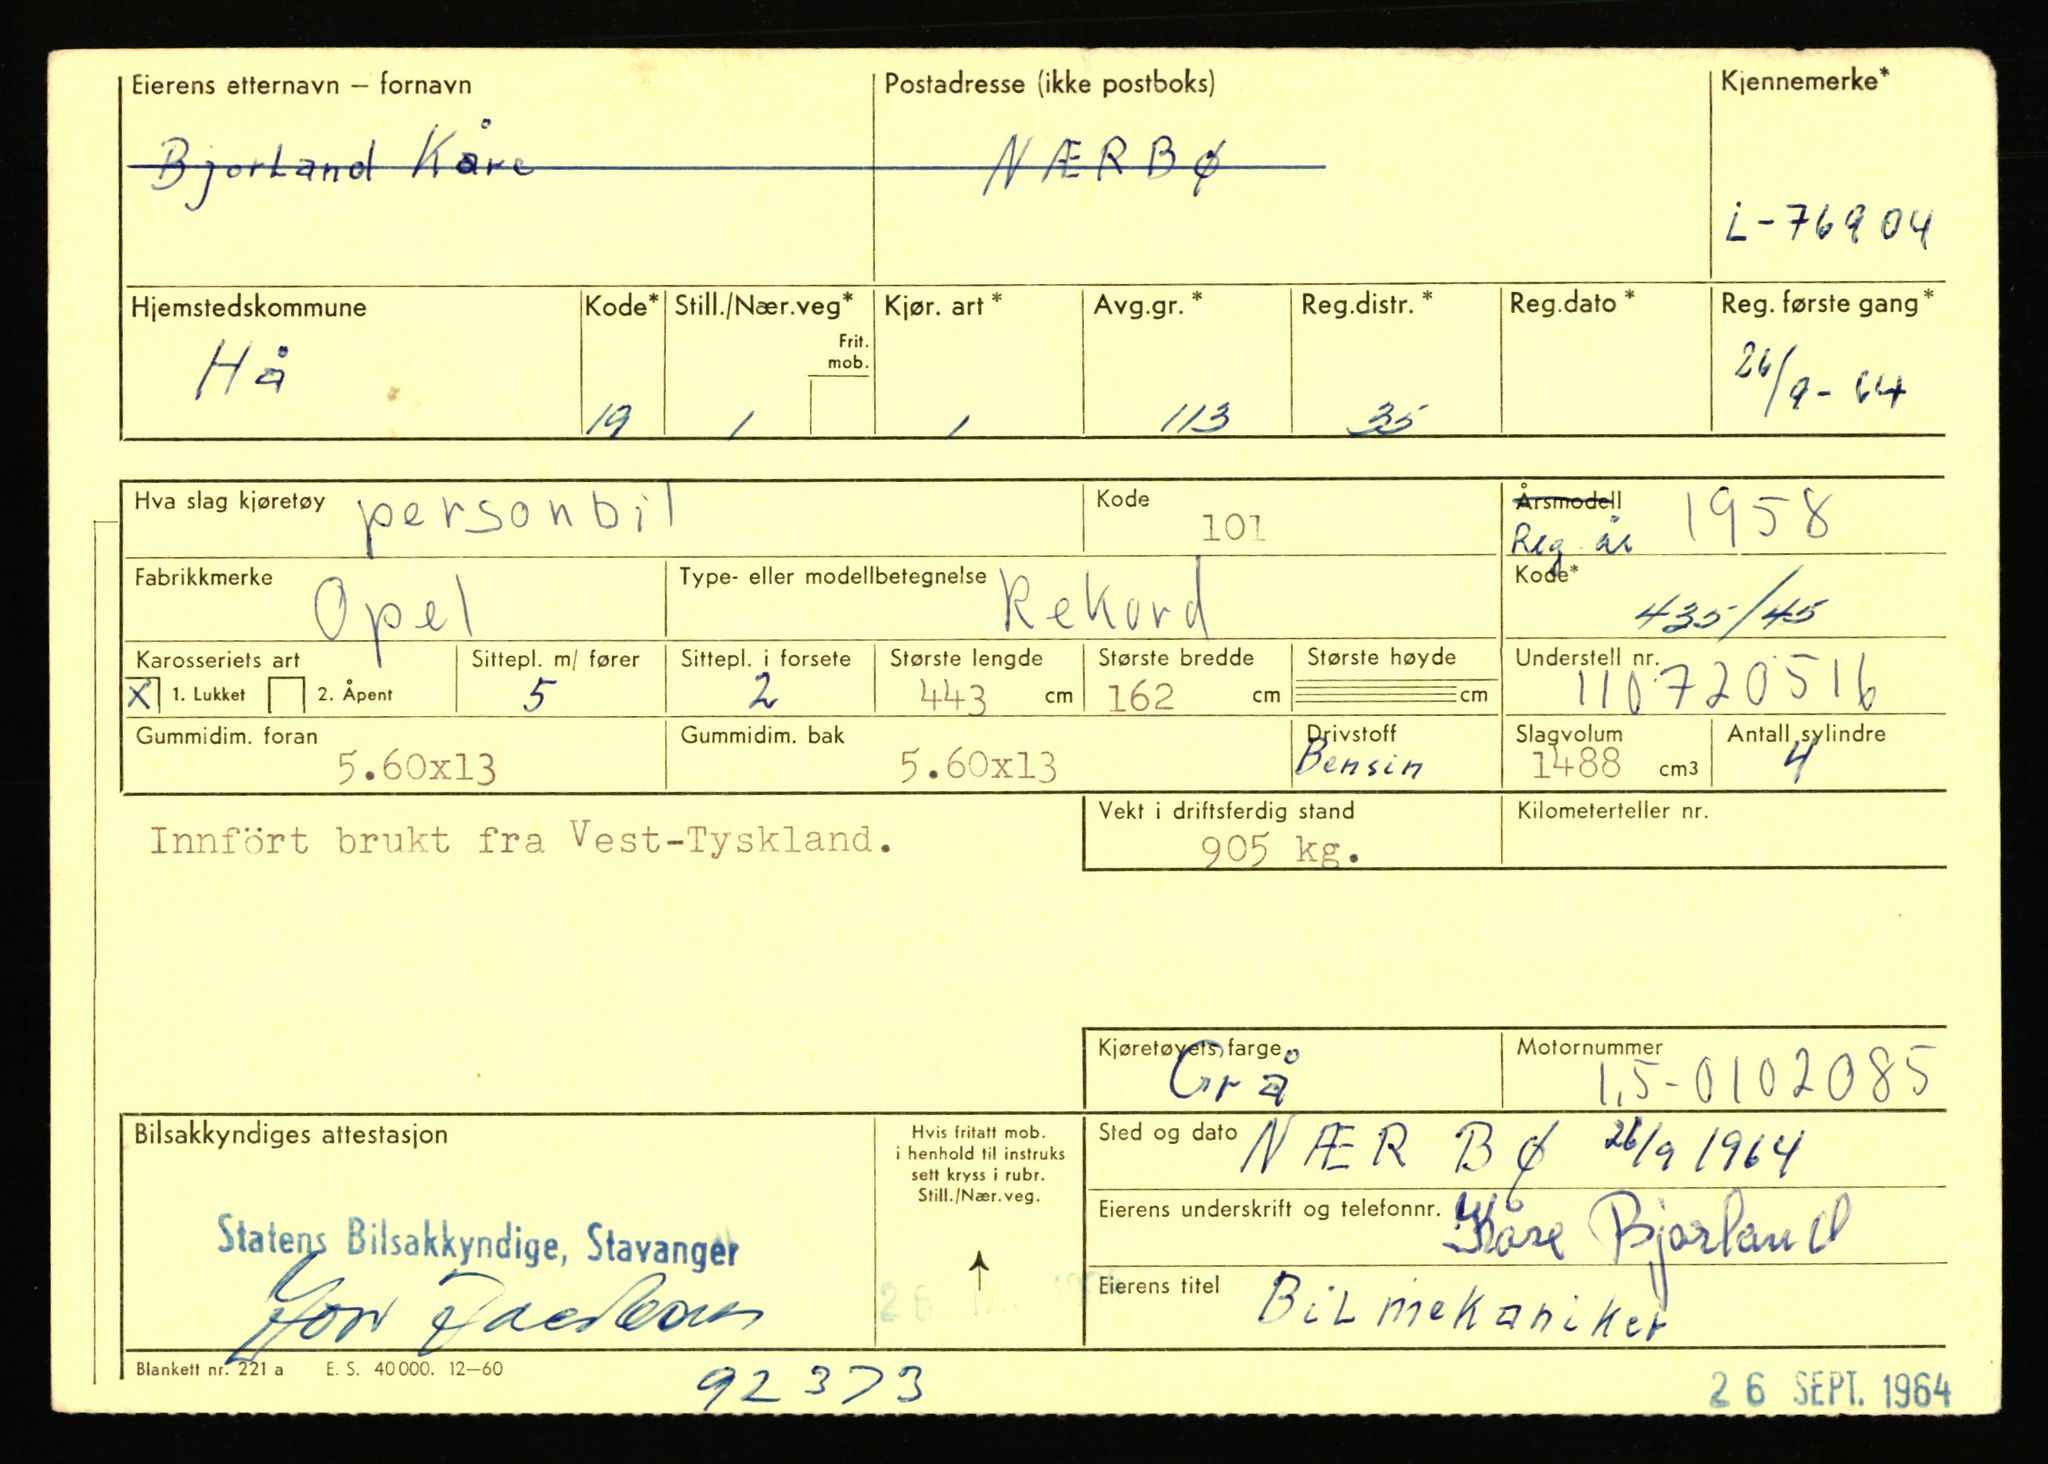 Eierens etternavn – fornavn Postadresse (ikke postboks) Kjennemerke*
Bjorland Kåre NÆRBØ
L-76904
Hjemstedskommune Kode* Still./Nær.veg* Kjør. art* Avg.gr.* Reg.distr.* Reg.dato* Reg. første gang*
Frit.
mob.
Hå 19 1 1 113 35 26/9-64
Hva slag kjøretøy personbil Kode 101 Årsmodell 1958
Reg år
Fabrikkmerke Opel Type- eller modellbetegnelse Rekord Kode*
435/45
Karosseriets art Sittepl. m/ fører Sittepl. i forsete Største lengde Største bredde Største høyde Understell nr.
X 1. Lukket 2. Åpent 5 2 443 cm 162 cm cm 110720516
Gummidim. foran Gummidim. bak Drivstoff Slagvolum Antall sylindre
5.60x13 5.60x13 Bensin 1488 cm3 4
Vekt i driftsferdig stand Kilometerteller nr.
Innfört brukt fra Vest-Tyskland. 905 kg.
Kjøretøyets farge Motornummer
Grå 1,5-0102085
Bilsakkyndiges attestasjon Hvis fritatt mob. Sted og dato NÆRBØ 26/9 1964
i henhold til instruks
sett kryss i rubr.
Still./Nær.veg.
Eierens underskrift og telefonnr. Kåre Bjorland
Statens Bilsakkyndige, Stavanger
Eierens titel Bilmekaniker
Blankett nr. 221 a E. S. 40 000. 12–60
92373
26 SEPT. 1964